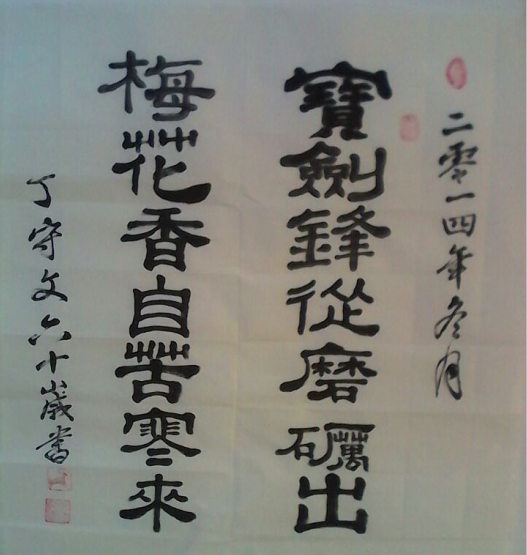 二零一四年冬月
寶劍鋒從磨礪出
梅花香自苦寒來
丁守文六十歲書